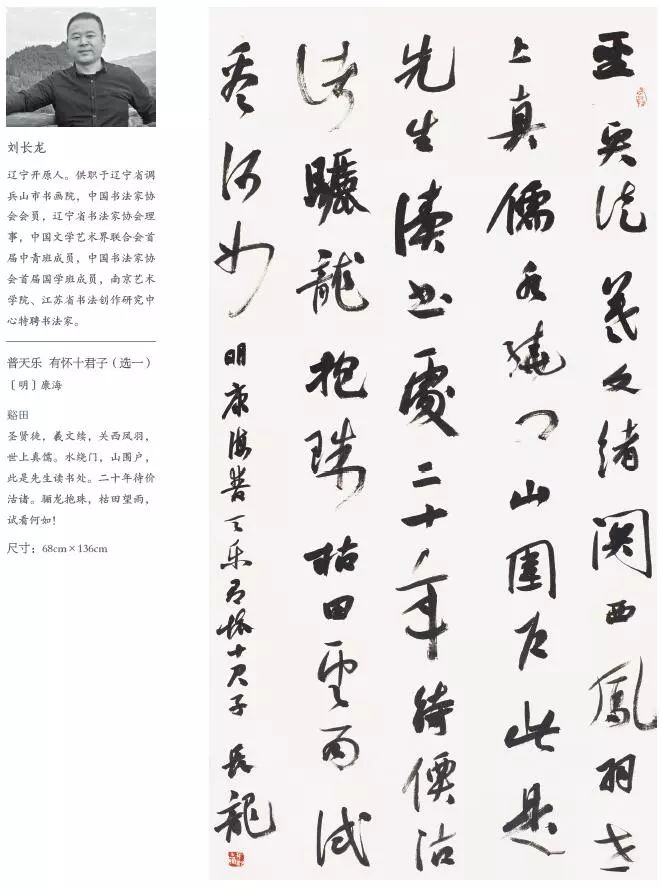 刘长龙
辽宁开原人。供职于辽宁省调
兵山市书画院，中国书法家协
会会员，辽宁省书法家协会理
事，中国文学艺术界联合会首
届中青班成员，中国书法家协
会首届国学班成员，南京艺术
学院、江苏省书法创作研究中
心特聘书法家。
普天乐 有怀十君子（选一）
［明］康海
谿田
圣贤徒，羲文续，关西凤羽，
世上真儒。水绕门，山围户，
此是先生读书处。二十年待价
沽诸。骊龙抱珠，枯田望雨，
试看何如！
尺寸：68cm×136cm
聖賢徒羲文緒関西鳳羽世
上真儒水繞門山圍戶此是
先生讀書處二十年待價沽
諸驪龍抱珠枯田望雨試
看何如 明康海普天乐有怀十君子 長龍